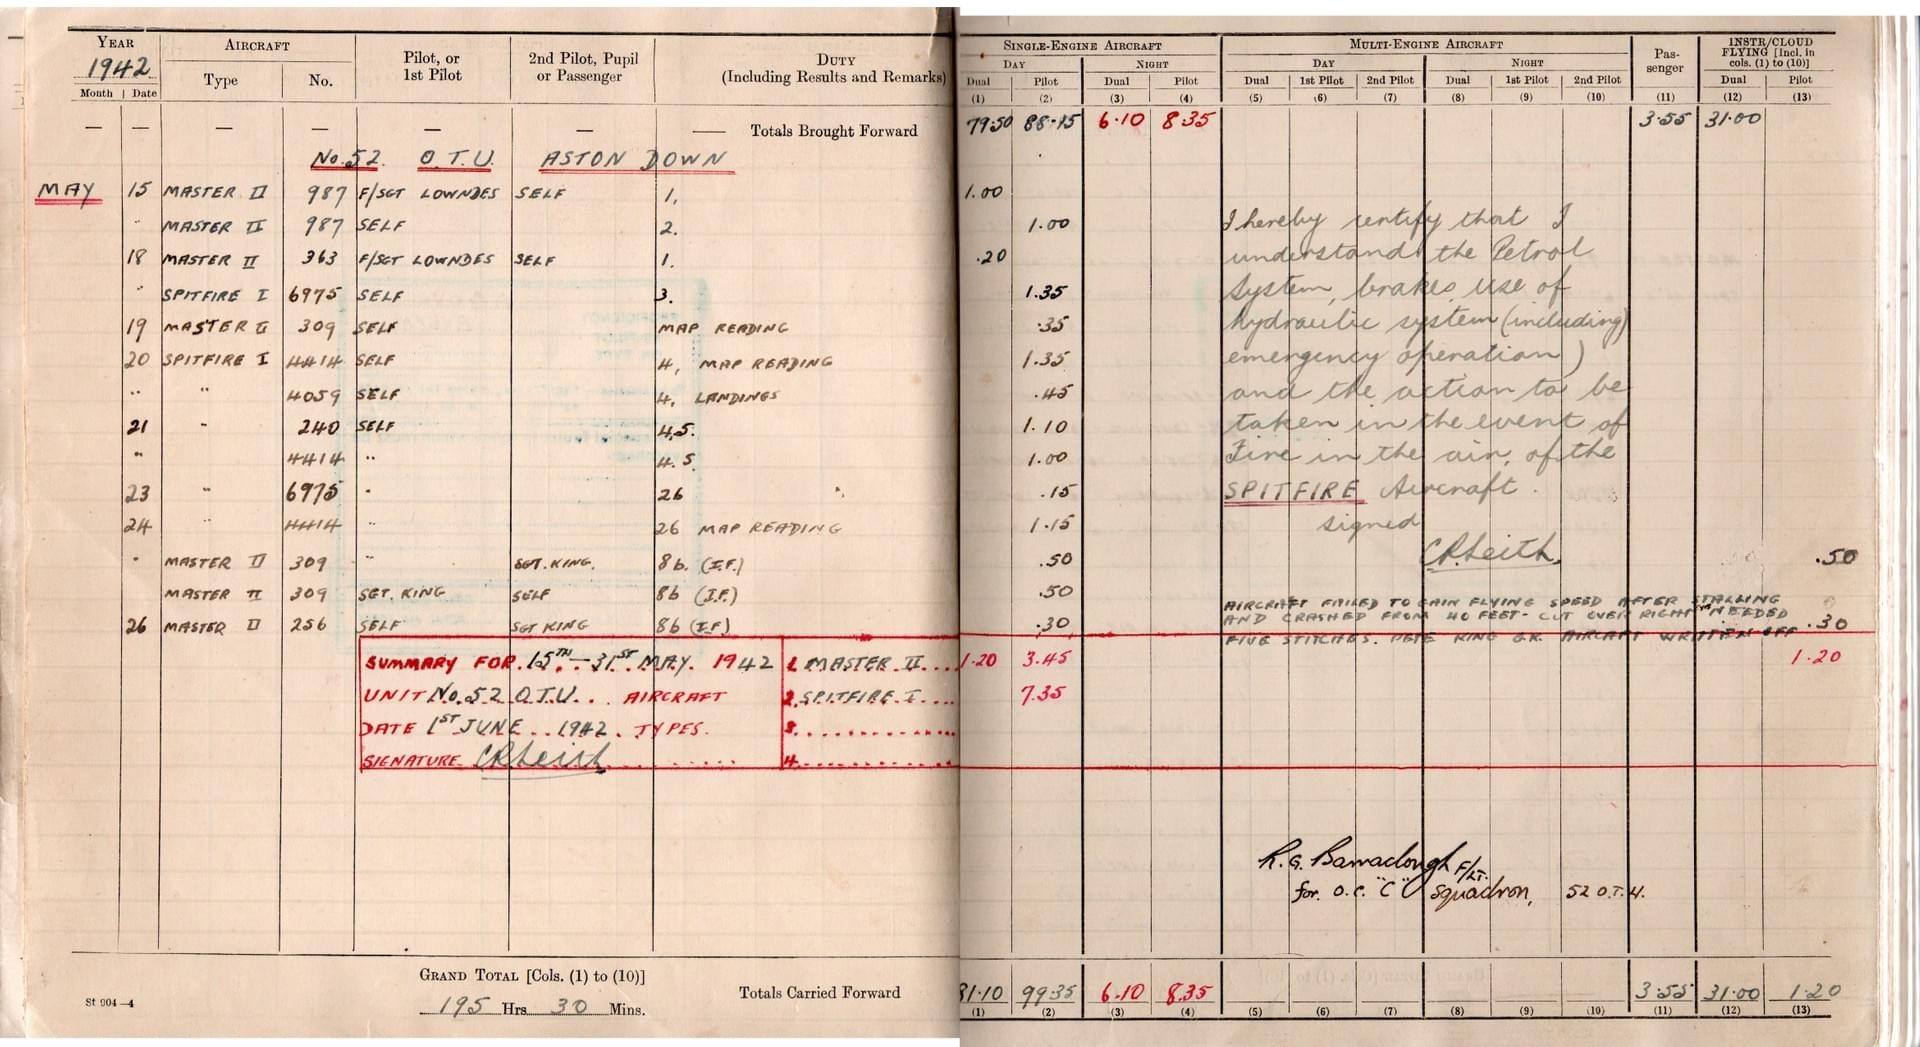 YEAR AIRCRAFT Pilot, or 1st Pilot 2nd Pilot, Pupil or Passenger DUTY (Including Results and Remarks) SINGLE-ENGINE AIRCRAFT MULTI-ENGINE AIRCRAFT Pas-senger INSTR/CLOUD FLYING [Incl. in cols. (1) to (10)]
1942 DAY NIGHT DAY NIGHT
Month Date Type No. Dual Pilot Dual Pilot Dual 1st Pilot 2nd Pilot Dual 1st Pilot 2nd Pilot Dual Pilot
(1) (2) (3) (4) (5) (6) (7) (8) (9) (10) (11) (12) (13)
— — — — — — — Totals Brought Forward 79.50 88.15 6.10 8.35 3.55 31.00
No. 52. O.T.U. ASTON DOWN
MAY 15 MASTER II 987 F/SGT LOWNDES SELF 1. 1.00
" MASTER II 987 SELF 2. 1.00
18 MASTER II 363 F/SGT LOWNDES SELF 1. .20
" SPITFIRE I 6975 SELF 3. 1.35
19 MASTER II 309 SELF MAP READING .35
20 SPITFIRE I 4414 SELF 4, MAP READING 1.35
" " 4059 SELF 4, LANDINGS .45
21 " 240 SELF 4.5. 1.10
" 4414 " 4.5. 1.00
23 " 6975 " 26 .15
24 " 4414 " 26 MAP READING 1.15
" MASTER II 309 " SGT. KING. 8b. (I.F.) .50 .50
MASTER II 309 SGT. KING SELF 8b (I.F.) .50
26 MASTER II 256 SELF SGT KING 8b (I.F.) .30 .30
I hereby certify that I
understand the Petrol
System, brakes, use of
hydraulic system (including)
emergency operation)
and the action to be
taken in the event of
Fire in the air, of the
SPITFIRE Aircraft.
signed
C R Leith.
AIRCRAFT FAILED TO GAIN FLYING SPEED AFTER STALLING
AND CRASHED FROM 40 FEET - CUT OVER RIGHT NEEDED
FIVE STITCHES. PETE KING O.K. AIRCRAFT WRITTEN OFF
SUMMARY FOR. 15TH — 31ST MAY. 1942 1. MASTER II.... 1.20 3.45 1.20
UNIT No. 52 O.T.U... AIRCRAFT 2. SPITFIRE I.... 7.35
DATE 1ST JUNE.. 1942. TYPES. 3...........
SIGNATURE C R Leith........ 4...........
R. G. Barraclough F/Lt.
for O.C. "C" Squadron, 52 O.T.U.
GRAND TOTAL [Cols. (1) to (10)]
195 Hrs 30 Mins.
Totals Carried Forward 81.10 99.35 6.10 8.35 3.55 31.00 1.20
(1) (2) (3) (4) (5) (6) (7) (8) (9) (10) (11) (12) (13)
St 904—4